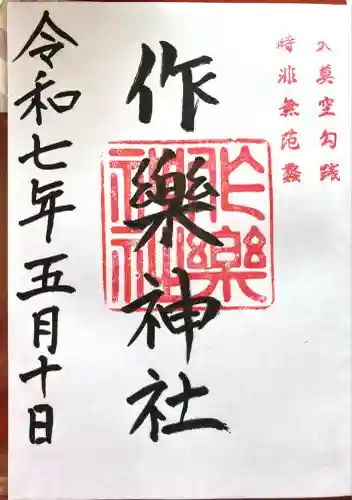 天莫空勾践
時非無范蠡
作樂神社
作樂神社
令和七年五月十日